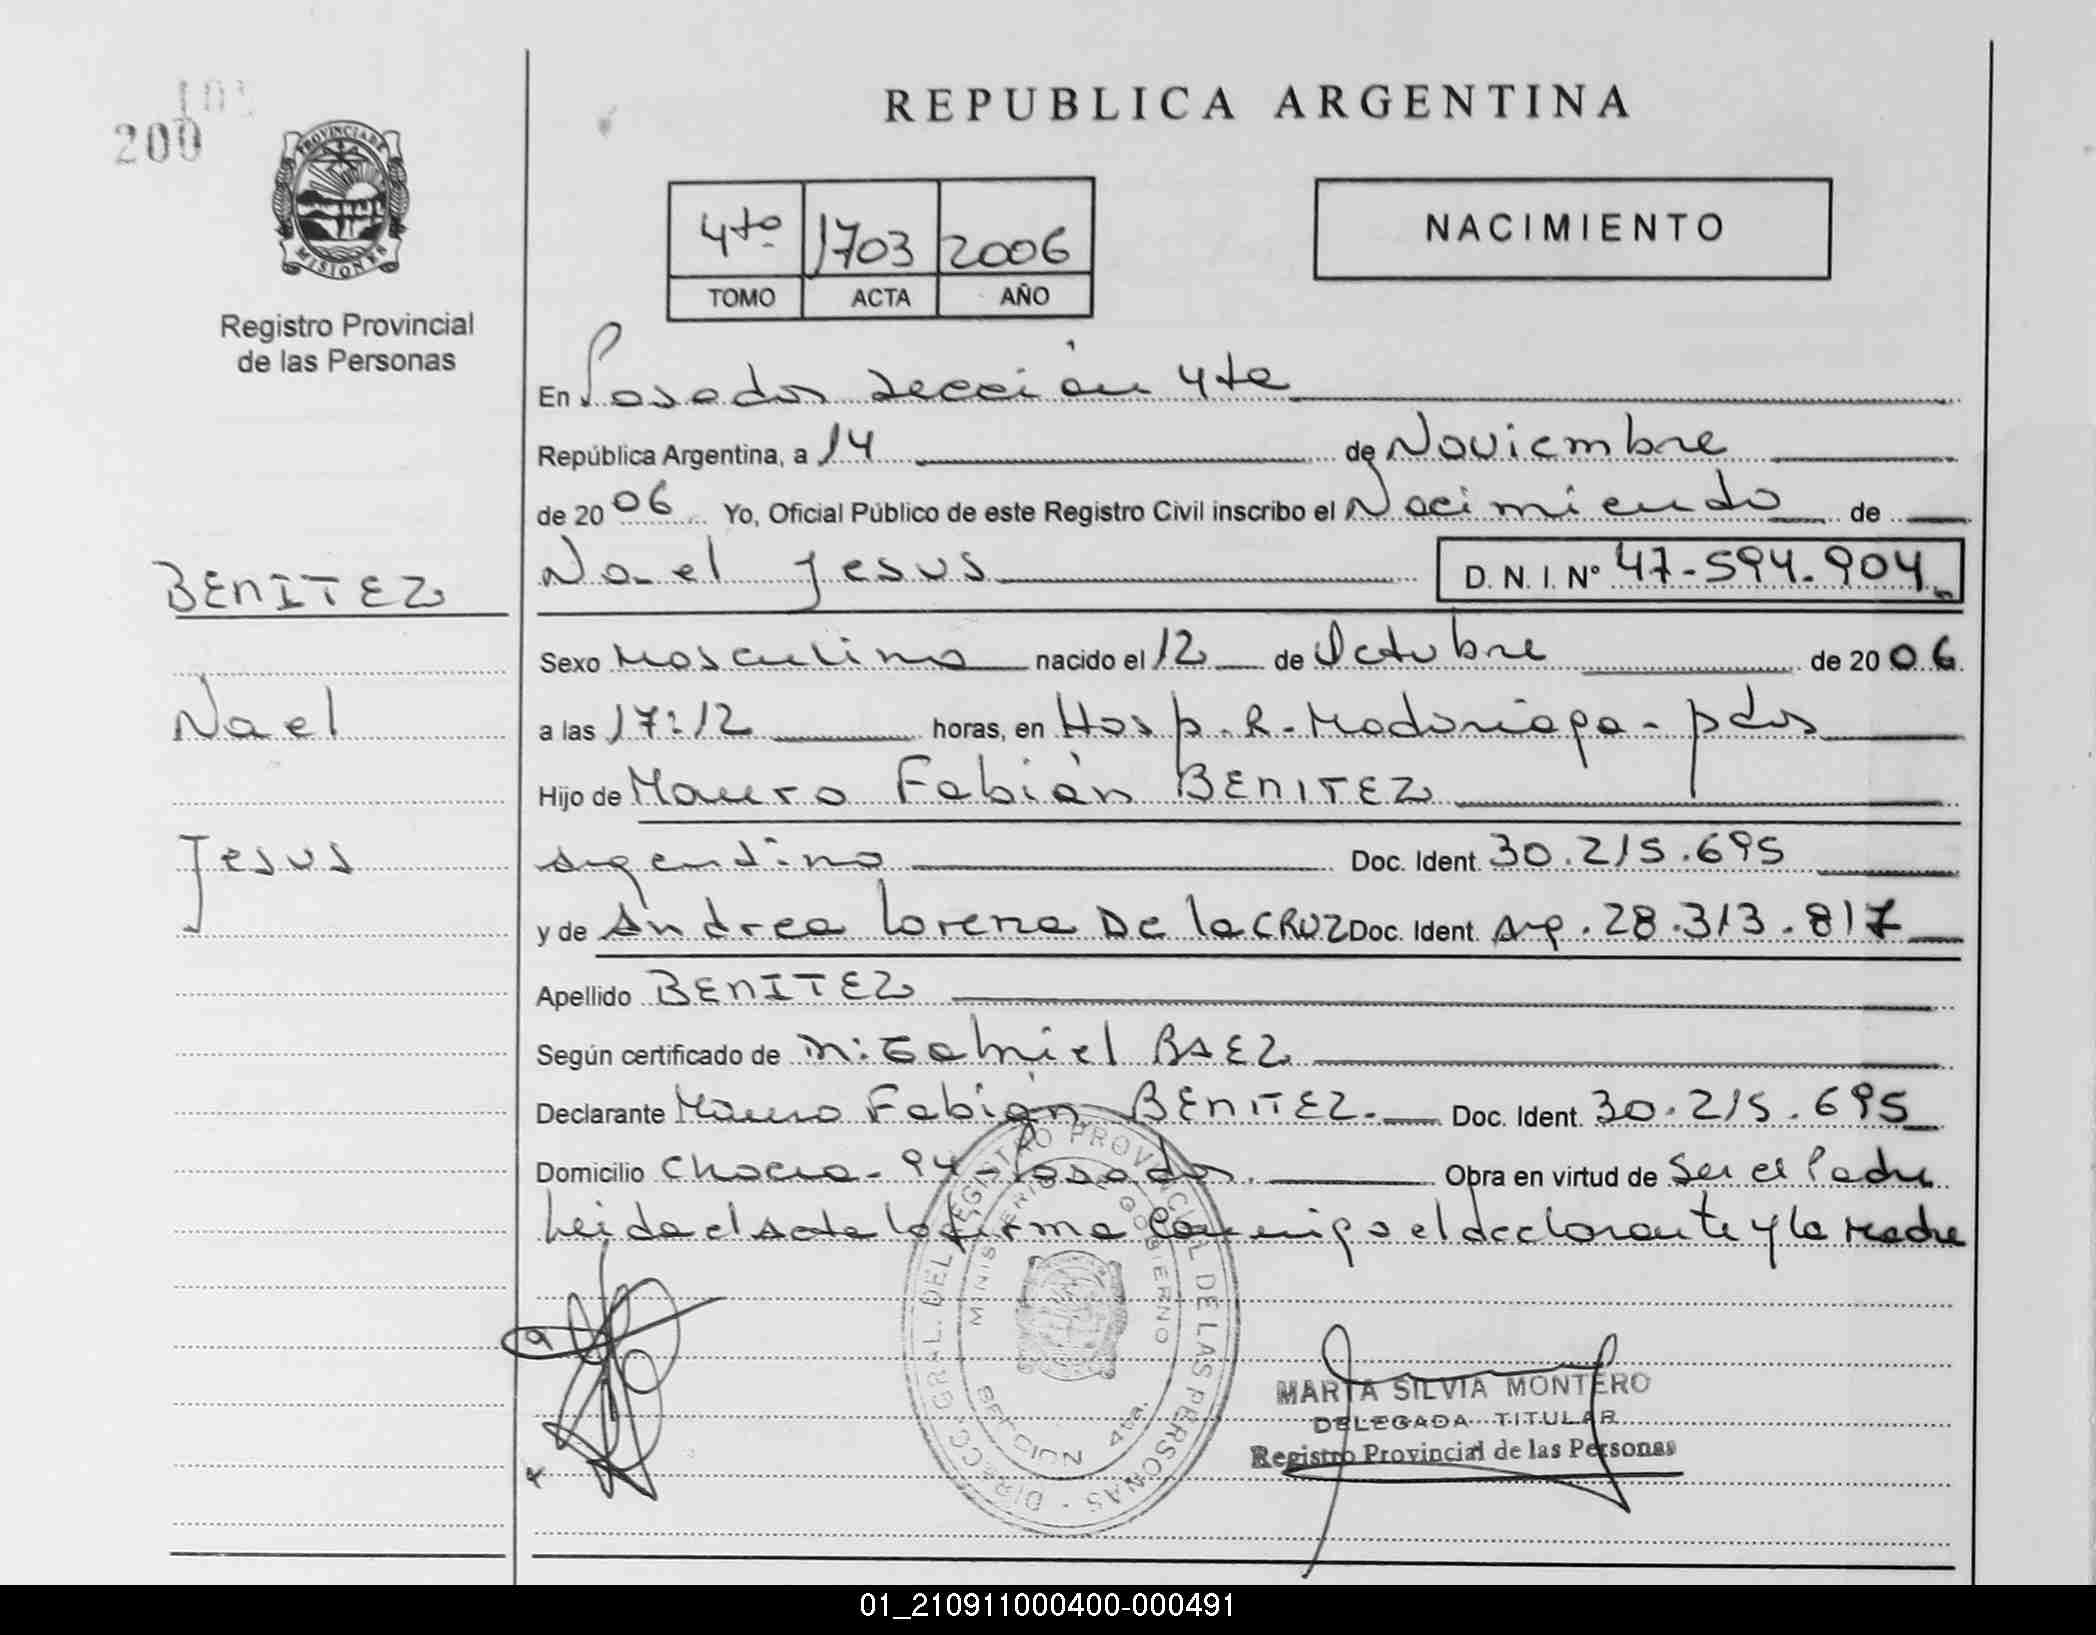 200
PROVINCIA DE
MISIONES
Registro Provincial
de las Personas
REPUBLICA ARGENTINA
4to 1703 2006
TOMO ACTA AÑO
NACIMIENTO
En Posadas sección 4ta
República Argentina, a 14 de Noviembre
de 2006 Yo, Oficial Público de este Registro Civil inscribo el Nacimiento de
BENITEZ
Nael Jesus D. N. I. Nº 47-594.904
Sexo Masculino nacido el 12 de Octubre de 2006
Nael
a las 17:12 horas, en Hosp. R. Madariaga - pdas
Hijo de Mauro Fabián BENITEZ
Jesus
argentino Doc. Ident. 30.215.695
y de Andrea Lorena De la CRUZ Doc. Ident. Arg. 28.313.817
Apellido BENITEZ
Según certificado de M: Gabriel BAEZ
Declarante Mauro Fabián BENITEZ. Doc. Ident. 30.215.695
Domicilio Chacra - 94 - Posadas. Obra en virtud de Ser el Padre
Leida el acta la firma conmigo el declarante y la madre
DIRECC. GRAL. DEL REGISTRO PROVINCIAL DE LAS PERSONAS
MINISTERIO DE GOBIERNO
SECCION 4ta.
MARTA SILVIA MONTERO
DELEGADA TITULAR
Registro Provincial de las Personas
01_210911000400-000491